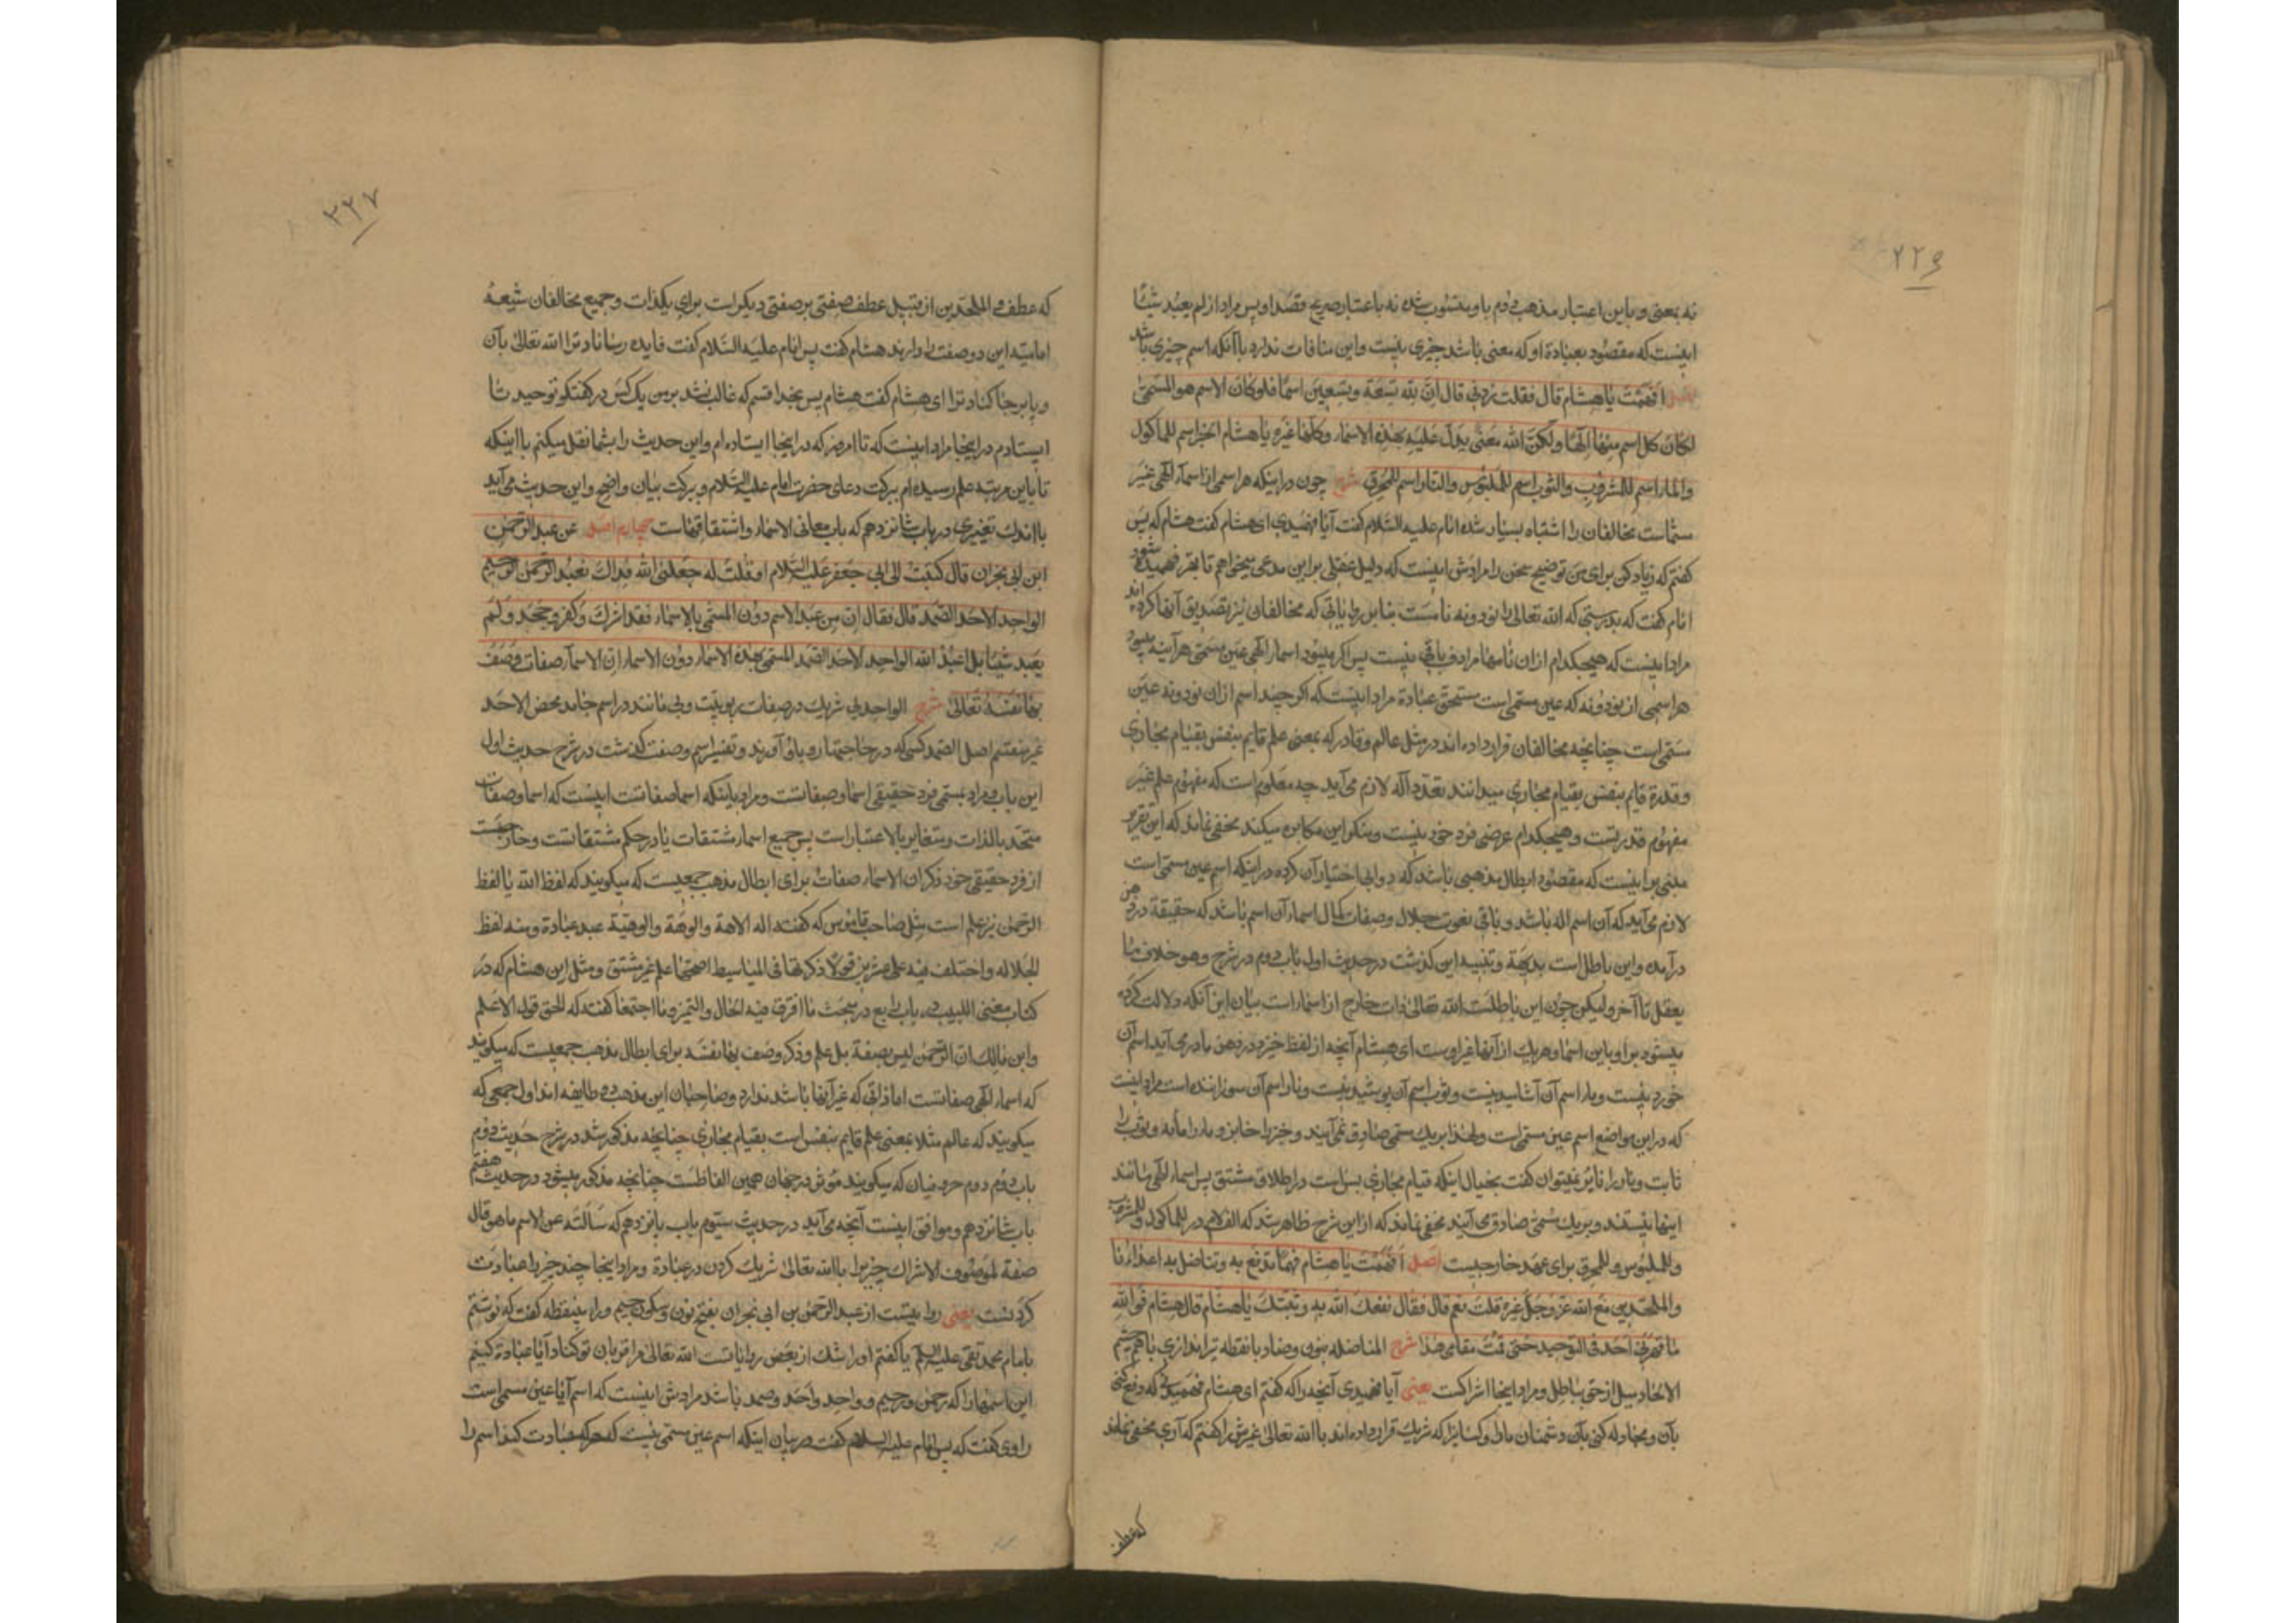 ۲۲۶
نه بمعنی و باین اعتبار مذهب دوم باو منسوب شده نه باعتبار صریح قصد او پس مراد از لم یعبد شیئا
اینست که مقصود بعبادة او که معنی باشد چیزی نیست و این منافات ندارد باآنکه اسم چیزی باشد
اصل افهمت یا هشام قال فقلت زدنی قال ان لله تسعة و تسعین اسما فلو کان الاسم هو المسمی
لکان کل اسم منها الها ولکن الله معنی یدل علیه بهذه الاسماء وکلها غیره یا هشام الخبز اسم للماکول
والماء اسم للمشروب والثوب اسم للملبوس والنار اسم للمحرق شرح چون در اینکه هر اسمی از اسماء الهی غیر
مسماست مخالفان را اشتباه بسیار شده امام علیه السلام گفت آیا فهمیدی ای هشام گفت هشام که پس
گفتم که زیاد کن برای من توضیح سخن را مرادش اینست که دلیل عقلی براین مدعی میخواهم تا بقر فهمیده شود
امام گفت که بدرستی که الله تعالی را نود و نه نامست بنابر روایاتی که مخالفان نیز تصدیق آنها کرده اند
مراد اینست که هیچکدام از ان نامها مرادف باقی نیست پس اگر میبود اسماء الهی عین مسمی هر آینه میبود
هر اسمی از نود و نه که عین مسمی است مستحق عبادة مراد اینست که اگر چند اسم از ان نود و نه عین
مسمی است چنانچه مخالفان قرار داده اند در مثل عالم و قادر که بمعنی علم قایم بنفس بقیام مجازی
و قدرة قایم بنفس بقیام مجازی میدانند تعدد آله لازم می آید چه معلوم است که مفهوم علم غیر
مفهوم قدرتست و هیچکدام عرضی فرد خود نیست و منکر این مکابره میکند مخفی نماند که این تقریر
مبنی بر اینست که مقصود ابطال مذهبی باشد که دوانی اختیار آن کرده در اینکه اسم عین مسمی است
لازم می آید که آن اسم اله باشد و باقی نعوت جلال و صفات کمال اسماء آن اسم باشد که حقیقة در ذهن
درآمده و این باطل است بدیهة و تنبیه این گذشت در حدیث اول باب دوم در شرح و هو خلاف ما
یعقل تا آخر ولیکن چون این باطلست الله تعالی ذات خارج از اسماء است بیان این آنکه دلالت کرده
میشود بر او باین اسما و هریک از آنها غیر اوست ای هشام آنچه از لفظ خبز در ذهن ما درمی آید اسم آن
خوردنیست و ماء اسم آن آشامیدنیست و ثوب اسم آن پوشیدنیست و نار اسم آن سوزاننده است مراد اینست
که در این مواضع اسم عین مسمی است و لهذا بر یک مسمی صادق نمی آیند و خبز را خابز و ماء را مائه و ثوب را
ثابت و نار را نایر نمیتوان گفت بخیال اینکه قیام مجازی بس است در اطلاق مشتق پس اسماء الهی مانند
اینها نیستند و بر یک مسمی صادق می آیند مخفی نماند که از این شرح ظاهر شد که الف لام در للماکول و للمشروب
و للملبوس و للمحرق برای عهد خارجیست اصل افهمت یا هشام فهما تدفع به وتناضل به اعداءنا
والملحدین مع الله عز وجل غیره قلت نعم قال فقال نفعک الله به وثبتک یا هشام قال هشام فوالله
ما قهرنی احد فی التوحید حتی قمت مقامی هذا شرح المناضله بنون و ضاد با نقطه تیراندازی باهم
الالحاد میل از حق بباطل و مراد اینجا اشراکست یعنی آیا فهمیدی آنچه را که گفتم ای هشام فهمیدنی که دفع کنی
بآن و مجادله کنی بآن دشمنان ما را و کسانرا که شریک قرار داده اند با الله تعالی غیرش را گفتم که آری مخفی نماند
که عطف
۳۲۷
که عطف و الملحدین از قبیل عطف صفتی بر صفتی دیگر است برای یکذات و جمیع مخالفان شیعه
امامیه این دو صفت را دارند هشام گفت پس امام علیه السلام گفت فایده رساناد ترا الله تعالی بآن
و پابرجا کناد ترا ای هشام گفت هشام پس بخدا قسم که غالب نشد برمن یک کس در گفتگو توحید تا
ایستادم در اینجا مراد اینست که تا امروز که در اینجا ایستاده ام و این حدیث را بشما نقل میکنم با اینکه
تا باین مرتبه علم رسیده ام برکت دعای حضرت امام علیه السلام و برکت بیان واضح و این حدیث می آید
با اندک تغییری در باب شانزدهم که باب معانی الاسماء و اشتقاقهاست چهارم اصل عن عبد الرحمن
ابن ابی نجران قال کتبت الی ابی جعفر علیه السلام او قلت له جعلنی الله فداک نعبد الرحمن الرحیم
الواحد الاحد الصمد قال فقال ان من عبد الاسم دون المسمی بالاسماء فقد اشرک و کفر و جحد و لم
یعبد شیئا بل اعبد الله الواحد الاحد الصمد المسمی بهذه الاسماء دون الاسماء ان الاسماء صفات وصف
بها نفسه تعالی شرح الواحد بی شریک در صفات ربوبیت و بی مانند در اسم جامد محض الاحد
غیر منقسم اصل الصمد کسی که در حاجتها رو باو آورند و تفسیر اسم و صفت گذشت در شرح حدیث اول
این باب و مراد بمسمی فرد حقیقی اسما و صفاتست و مراد باینکه اسما صفاتست اینست که اسما و صفات
متحد بالذات و متغایر بالاعتبار است پس جمیع اسماء مشتقات یا در حکم مشتقاتست و خارجست
از فرد حقیقی خود ذکر ان الاسماء صفات برای ابطال مذهب جمعیست که میگویند که لفظ الله یا لفظ
الرحمن نیز علم است مثل صاحب قاموس که گفته اله الاهة و الوهة و الوهیة عبد عبادة و منه لفظ
الجلاله و اختلف فیه علی عشرین قولا ذکرتها فی المباسیط اصحها علم غیر مشتق و مثل ابن هشام که در
کتاب مغنی اللبیب در باب رابع در مبحث ما افترق فیه الحال و التمیز و ما اجتمعا گفته که الحق قول الاعلم
و ابن مالک ان الرحمن لیس بصفة بل علم و ذکر وصف بها نفسه برای ابطال مذهب جمعیست که میگویند
که اسماء الهی صفاتست اما ذاتی که غیر آنها باشد ندارد و صاحبان این مذهب دو طایفه اند اول جمعی که
میگویند که عالم مثلا بمعنی علم قایم بنفس است بقیام مجازی چنانچه مذکور شد در شرح حدیث دوم
باب دوم دوم حروفیان که میگویند مؤثر در جهان همین الفاظست چنانچه مذکور میشود در حدیث هفتم
باب شانزدهم و موافق اینست آنچه می آید در حدیث سیوم باب پانزدهم که سألته عن الاسم ما هو قال
صفة لموصوف الاشراک چیزیرا با الله تعالی شریک کردن در عبادة و مراد اینجا چند چیز را عبادت
کردنست یعنی روایتست از عبد الرحمن بن ابی نجران بفتح نون و سکون جیم و راء بینقطه گفت که نوشتم
بامام محمد تقی علیه السلم یا گفتم او را شک از بعض روایاتست الله تعالی مرا قربان تو کناد آیا عبادة کنیم
این اسمها را که رحمن و رحیم و واحد و احد و صمد باشد مرادش اینست که اسم آیا عین مسمی است
راوی گفت که پس امام علیه السلام گفت در بیان اینکه اسم عین مسمی نیست که هرکه عبادت کند اسم را